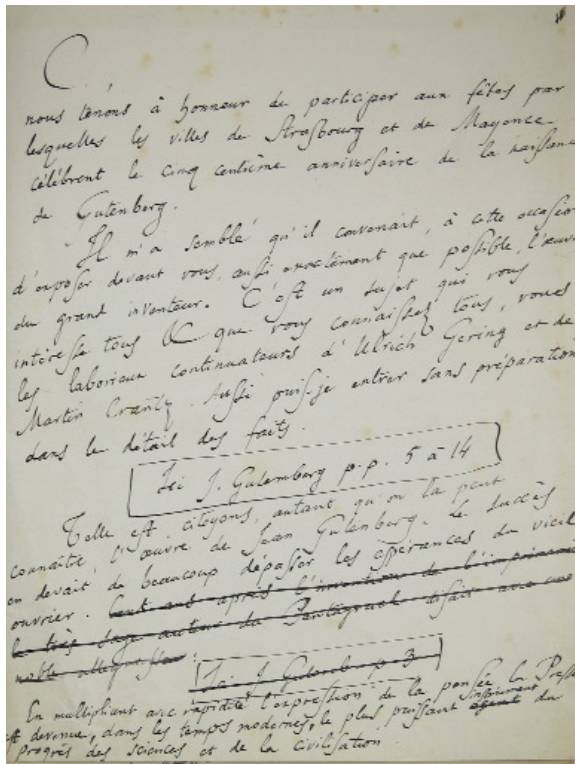 C.
nous tenons à honneur de participer aux fêtes par
lesquelles les villes de Strasbourg et de Mayence
célèbrent le cinq centième anniversaire de la naissance
de Gutenberg.
Il m'a semblé qu'il convenait, à cette occasion
d'exposer devant vous, aussi exactement que possible, l'œuvre
du grand inventeur. C'est un sujet qui vous
intéresse tous que vous connaissez tous, vous
les laborieux continuateurs d'Ulrich Gering et de
Martin Crantz. Aussi puis-je entrer sans préparation
dans le détail des faits.
Ici J. Gutemberg p.p. 5 à 14
Telle est citoyens, autant qu'on la peut
connaître, l'œuvre de Jean Gutenberg. Le succès
en devait de beaucoup dépasser les espérances du vieil
ouvrier. Cent ans après l'invention de l'imprimerie
le très sage auteur du Pantagruel disait avec une
noble allégresse :
Ici J. Gutemberg p. 3
En multipliant avec rapidité l'expression de la pensée, la Presse
est devenue, dans les temps modernes, le plus puissant agent instrument du
progrès des sciences et de la civilisation.